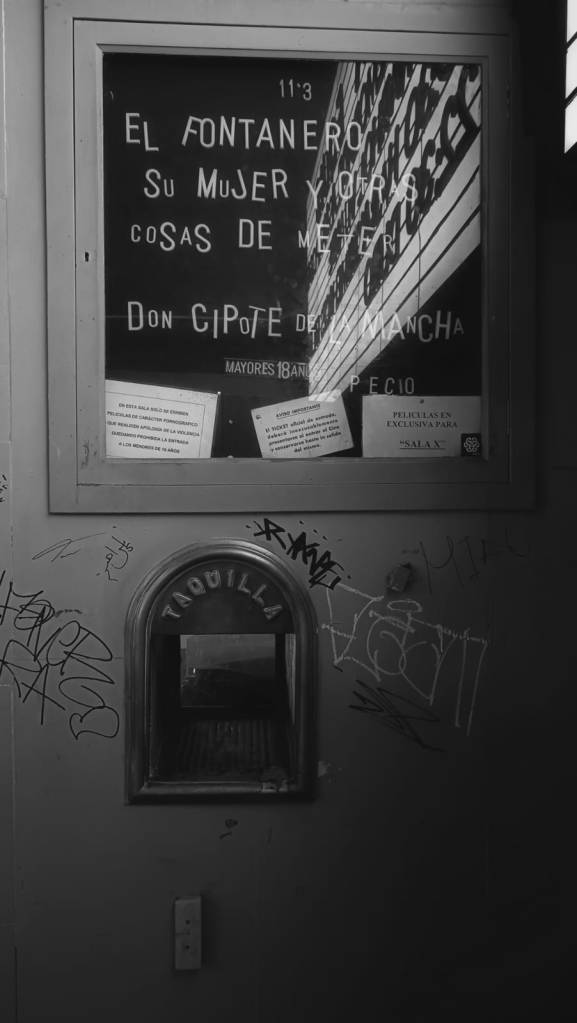 11·3
EL FONTANERO
SU MUJER Y OTRAS
COSAS DE METER
DON CIPOTE DE LA MANCHA
MAYORES 18 AÑOS
PECIO
EN ESTA SALA SOLO SE EXHIBEN
PELICULAS DE CARÁCTER PORNOGRAFICO
QUE REALICEN APOLOGIA DE LA VIOLENCIA
QUEDANDO PROHIBIDA LA ENTRADA
A LOS MENORES DE 18 AÑOS
AVISO IMPORTANTE
El TICKET oficial de entrada,
deberá inexcusablemente
presentarse al entrar al Cine
y conservarse hasta la salida
del mismo.
PELICULAS EN
EXCLUSIVA PARA
"SALA X"
TAQUILLA